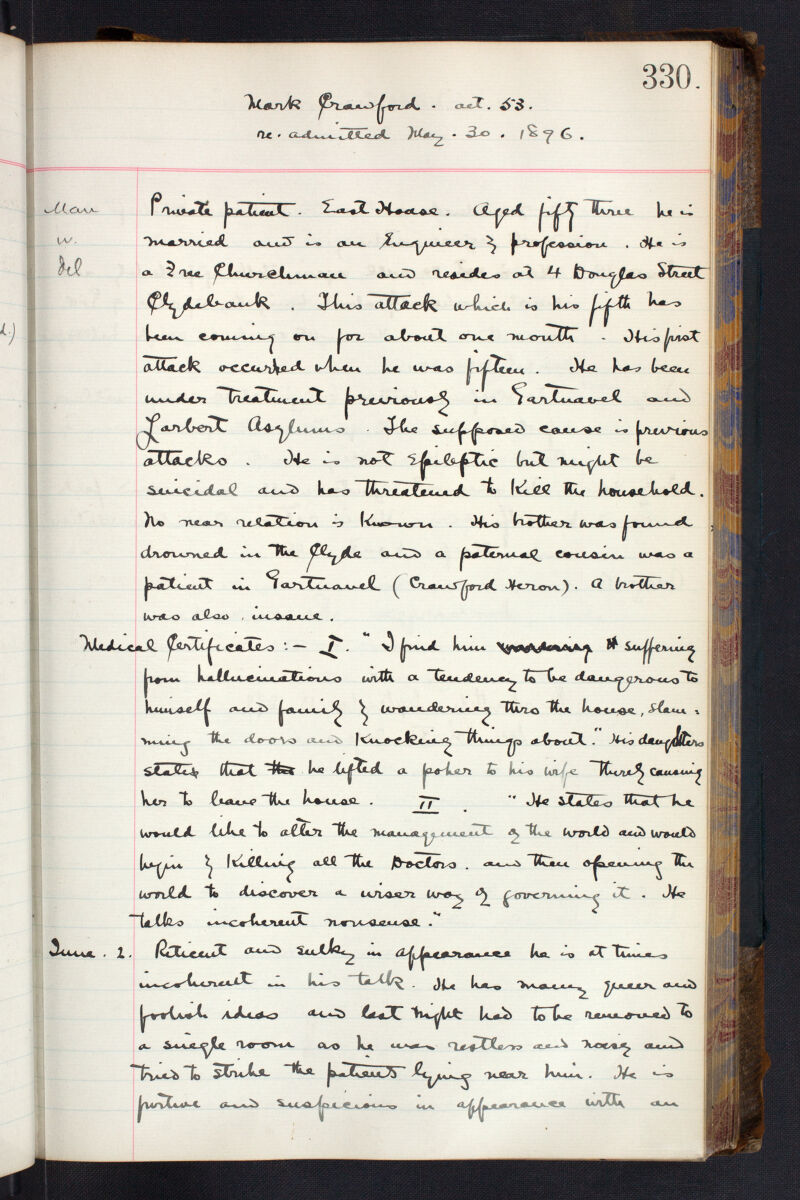 330.
Mark Crawford. aet. 53.
re. admitted May. 30. 1896.
Man
Private patient. East House. Aged fifty three he is
married and is an Engineer by profession. He is
a Free Churchman and resides at 4 Douglas Street
Clydebank. This attack which is his fifth has
d.)
been coming on for about one month. His first
attack occurred when he was fifteen. He has been
under treatment previously in Gartnavel and
Larbert Asylums. The supposed cause is previous
attacks. He is not Epileptic but might be
suicidal and has threatened to kill the household.
No near relation is known. His brother was found
drowned in the Clyde and a paternal cousin was a
patient in Gartnavel (Crawford Heron). A brother
was also insane.
Medical Certificates:- I. "I find him suffering
from hallucinations with a tendency to be dangerous to
himself and family by wandering thro the house, slam=
ming the doors and knocking things about." His daughters
state that he lifted a poker to his wife thereby causing
her to leave the house. II. "He states that he
would like to alter the management of the world and would
begin by killing all the Doctors. and then opening the
world to discover a wiser way of governing it. He
talks incoherent nonsense."
June. 2. Reticent and sulky in appearance he is at times
incoherent in his talk. He has many queer and
foolish ideas and last night had to be removed to
a single room as he was restless and noisy and
tried to strike the patients lying near him. He is
furtive and suspicious in appearance with an